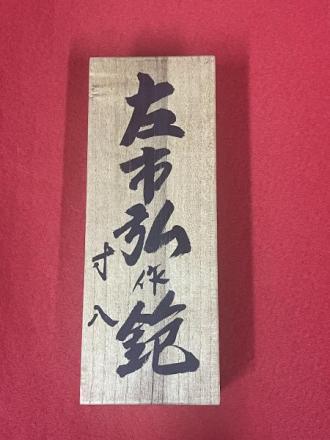 左市弘作鉋
寸八